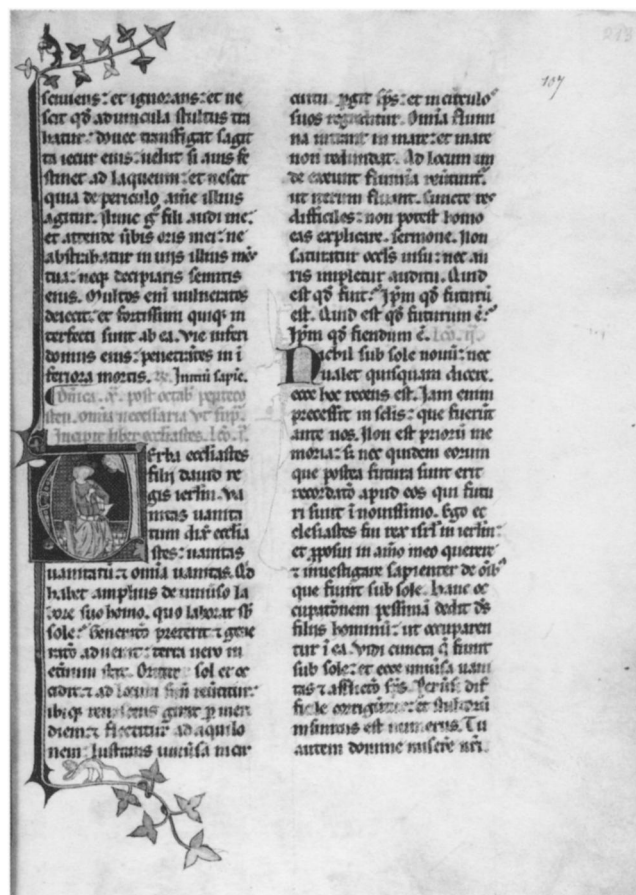 213
107
seruiens: et ignorans: et ne
scit qđ ad uincula stultus tra
hatur. donec transfigat sagit
ta iecur eius: uelut si auis fe
stinet ad laqueum: et nescit
quia de periculo aīme illius
agitur. Nunc gͦ fili audi me:
et attende ūbis oris mei: ne
abstrahatur in uijs illius mēs
tua: neqꝫ decipiaris semitis
eius. Multos enī uulneratos
deiecit: et fortissimi quiqꝫ in
terfecti sunt ab ea. Vie inferi
domus eius: penetrātes in ī
feriora mortis. Initiū sapiē.
post octab̄ penteco
sten. omīa necessaria vt
Incipit liber ecclīastes. lco. ī.
Erba ecclīastes
filij dauid re
gis ierl̄m. Va
nitas uanita
tum dix̄ ecclīa
stes: uanitas
uanitatū: ⁊ omīa uanitas. Qd
habet amplius de uniūso la
bore suo homo. quo laborat sb̄
sole: Generatō preterit ⁊ gene
ratō aduenit: terra uero in
eternum stat. Oritur sol et oc
cidit: ⁊ ad locum suū reuertitur:
ibiqꝫ renascens girat ꝑ meri
diem: ⁊ flectitur ad aquilo
nem: lustrans uniūsa in cir
cuitu ꝑgit sp̄s: et in circulos
suos regreditur. Omīa flumi
na intrant in mare: et mare
non redundat. Ad locum un
de exeunt flumīa reūtuntʳ.
ut iterum fluant. Cuncte res
difficiles: non potest homo
eas explicare sermone. Non
saturatur oculꝰ uisu: nec au
ris impletur auditu. Quid
est qđ fuit: Ip̄m qđ futurū
est. Quid est qđ futurum ē:
Ip̄m qđ fiendum ē. lco. ij.
Nichil sub sole nouū: nec
ualet quisquam dicere.
ecce hoc recens est. Iam enim
precessit in sclis: que fuerūt
ante nos. Non est priorū me
moria: sꝫ nec quidem eorum
que postea futura sunt erit
recordatō apud eos qui futu
ri sunt ī nouissimo. Ego ec
clesiastes fui rex isrl̄ in ierl̄m:
et ꝓposui in aīmo meo querere
⁊ inuestigare sapienter de oīb
que fiunt sub sole. Hanc oc
cupatōnem pessimā dedit dꝰs
filijs hominū: ut occuparen
tur ī ea. Vidi cuncta q̄ fiunt
sub sole: et ecce uniūsa uani
tas ⁊ afflictō sp̄s. Peruersi dif
ficile corrigūtur: et stultorū
infinitus est numerus. Tu
autem domine misere nr̄i.